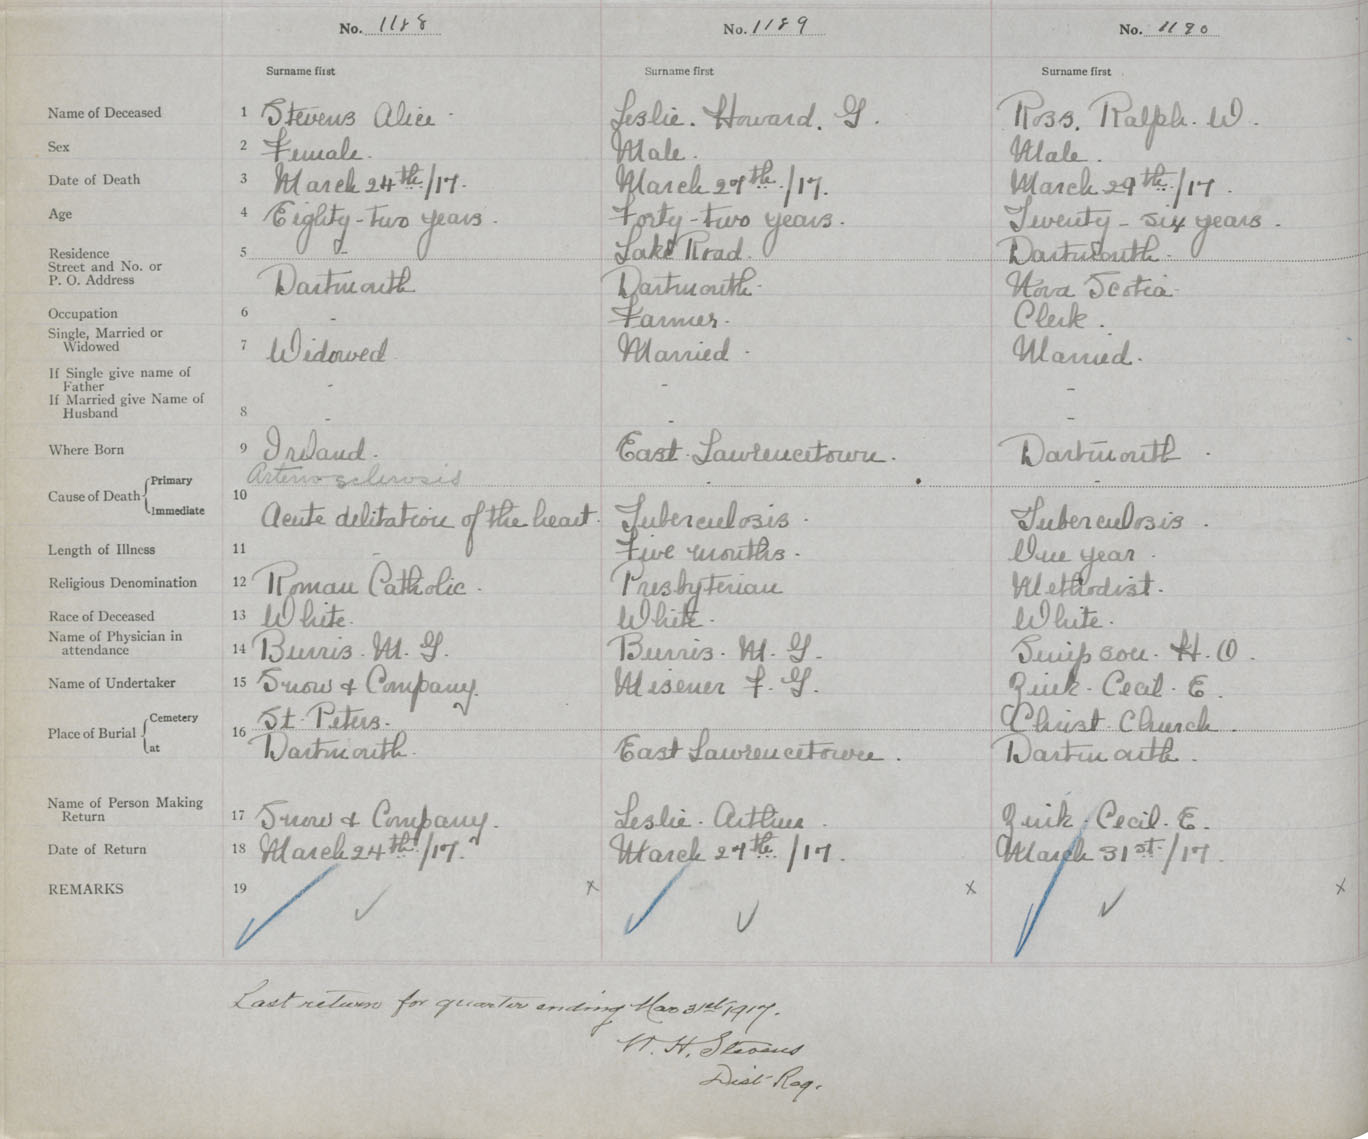 No. 1188 No. 1189 No. 1190
Surname first Surname first Surname first
Name of Deceased 1 Stevens Alice. Leslie. Howard. G. Ross. Ralph. W.
Sex 2 Female. Male. Male.
Date of Death 3 March 24th/17. March 27th/17. March 29th/17.
Age 4 Eighty-two years. Forty-two years. Twenty-six years.
Residence 5 - Lake Road. Dartmouth.
Street and No. or
P. O. Address Dartmouth Dartmouth. Nova Scotia
Occupation 6 - Farmer. Clerk.
Single, Married or
Widowed 7 Widowed Married. Married.
If Single give name of
Father - - -
If Married give Name of
Husband 8 - - -
Where Born 9 Ireland. East. Lawrencetown. Dartmouth.
Cause of Death Primary 10 Arterio sclerosis - -
Immediate Acute delitation of the heart. Tuberculosis. Tuberculosis.
Length of Illness 11 - Five months. One year.
Religious Denomination 12 Roman Catholic. Presbyterian Methodist.
Race of Deceased 13 White. White. White.
Name of Physician in
attendance 14 Burris. M. G. Burris. M. G. Simpson. H. O.
Name of Undertaker 15 Snow & Company. Misener F. G. Zink. Cecil. E.
Place of Burial Cemetery 16 St. Peters. Christ. Church.
at Dartmouth. East Lawrencetown. Dartmouth.
Name of Person Making
Return 17 Snow & Company. Leslie. Arthur. Zink. Cecil. E.
Date of Return 18 March 24th/17. March 27th/17. March 31st/17.
REMARKS 19 x x x
Last return for quarter ending Mar 31st 1917.
W. H. Stevens
Dist Reg.